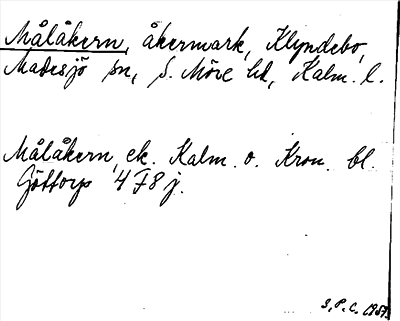 Målåkern, åkermark, Klyndebo,
Madesjö sn, S. Möre hd, Kalm. l.
Målåkern, ek. Kalm. o. Kron. bl.
Göttorp 4 F8 j.
S.P.C. 1959.